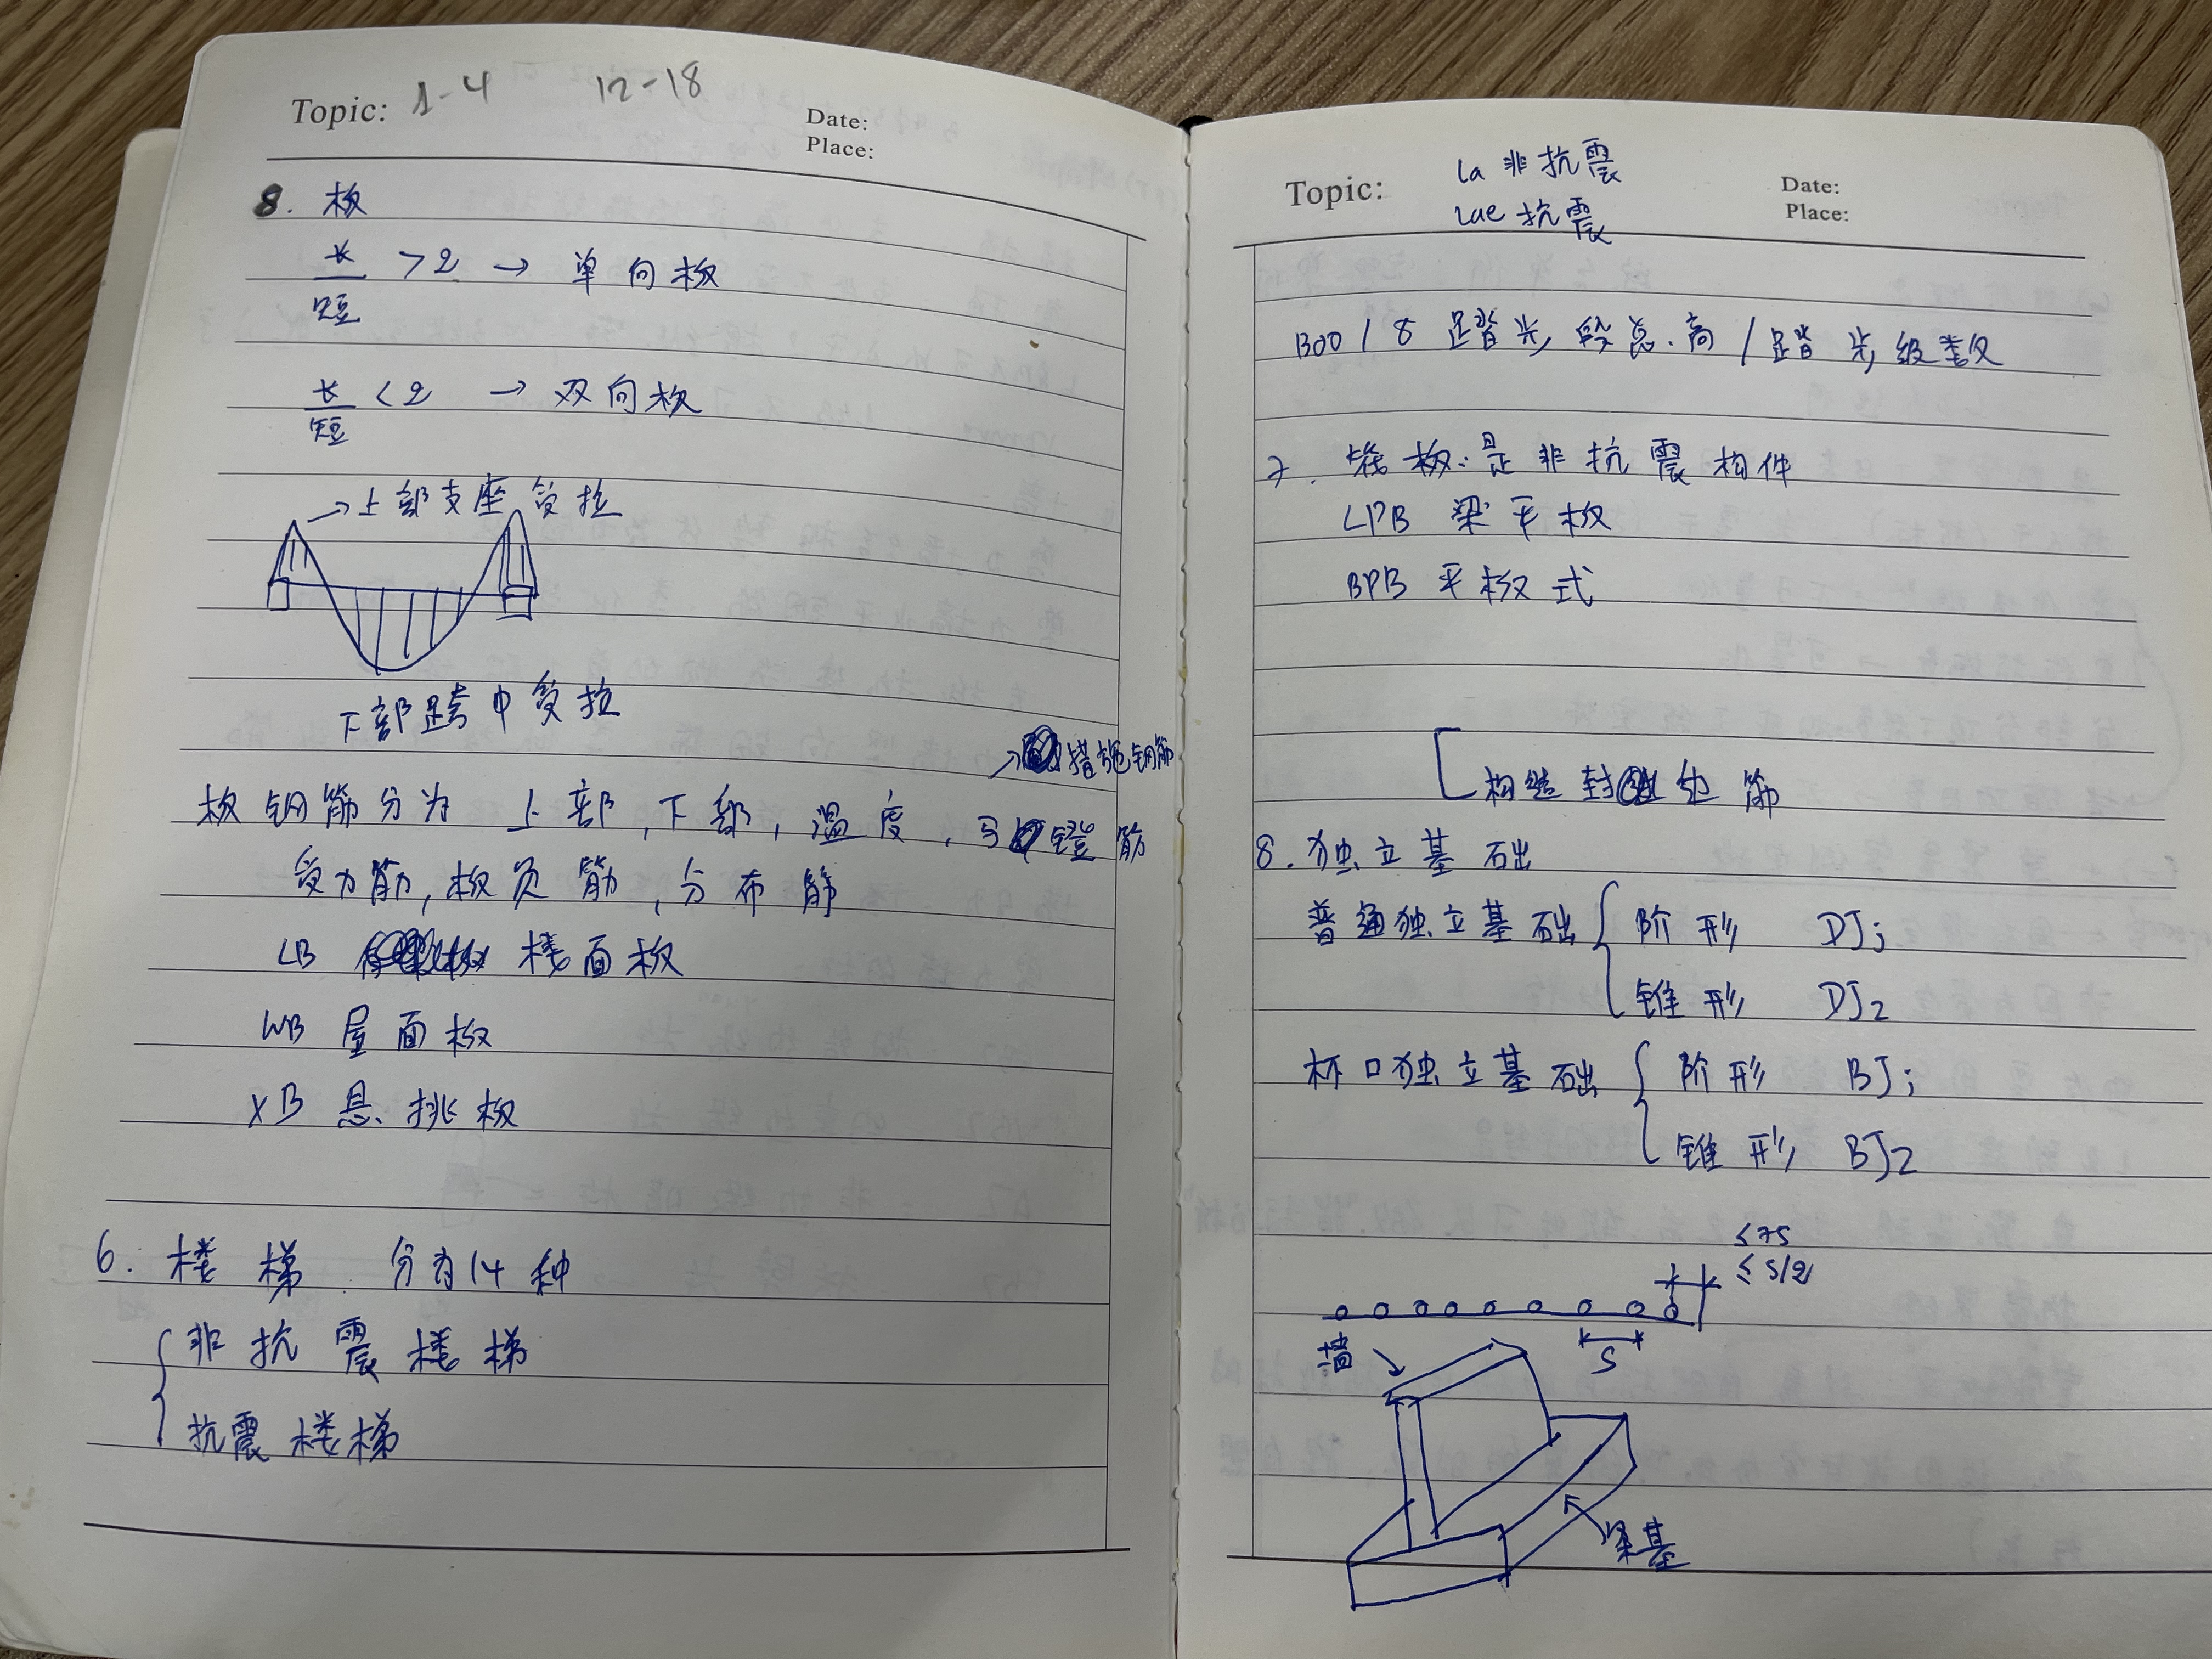 Topic: 1-4 12-18 Date:
Place:
8. 板
长/短 >2 → 单向板
长/短 <2 → 双向板
→上部支座受拉
下部跨中受拉
→措施钢筋
板钢筋分为 上部,下部,温度,马镫筋
受力筋,板负筋,分布筋
LB 楼面板
WB 屋面板
XB 悬挑板
6. 楼梯 分为14种
非抗震楼梯
抗震楼梯
Topic: la 非抗震 Date:
lae 抗震 Place:
1300/8 踏步段总高/踏步级数
7. 筏板:是非抗震构件
LPB 梁平板
BPB 平板式
构造封边筋
8.独立基础
普通独立基础 阶形 DJj
锥形 DJz
杯口独立基础 阶形 BJj
锥形 BJz
≤75
≤S/2
S
墙
梁基